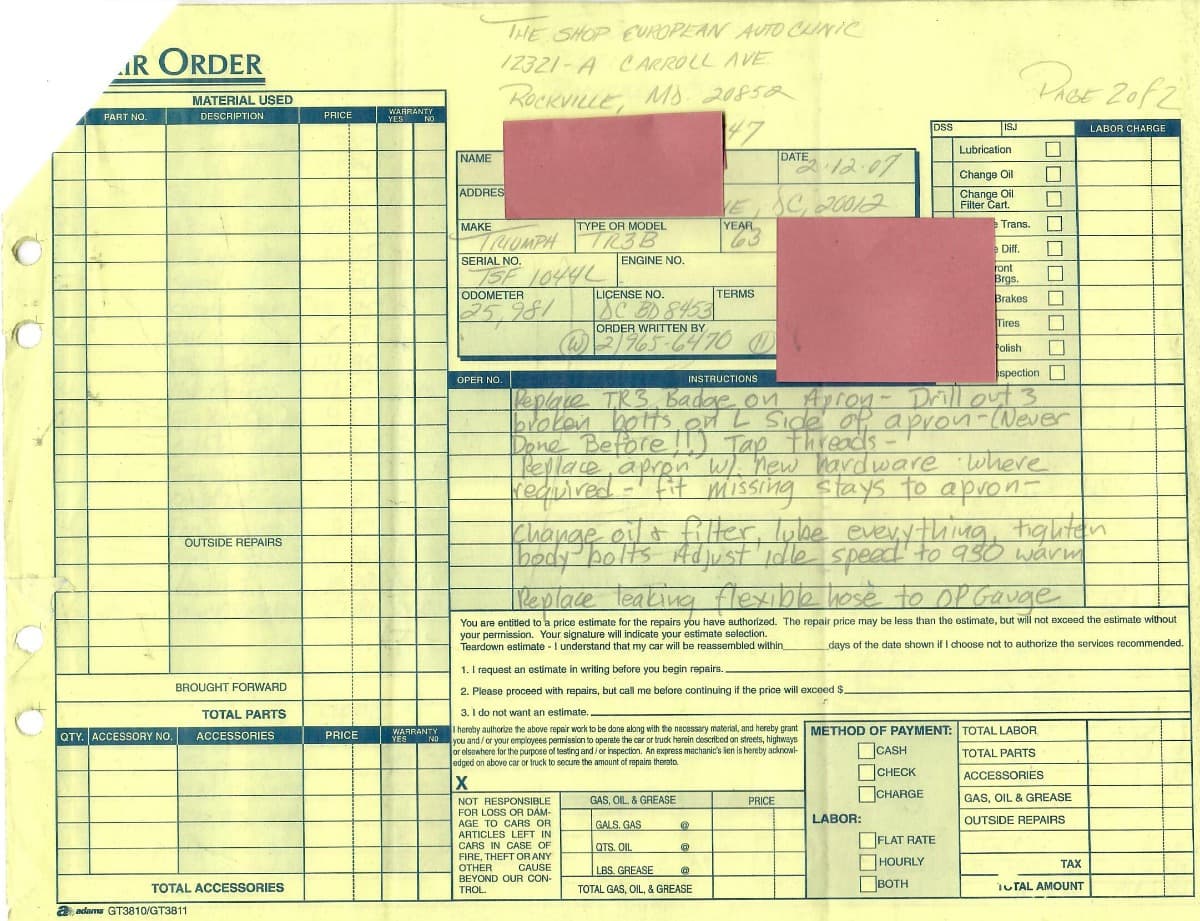 THE SHOP EUROPEAN AUTO CLINIC
12321-A CARROLL AVE
ROCKVILLE, MD. 20852
47
PAGE 2 of 2
IR ORDER
MATERIAL USED
PART NO. DESCRIPTION PRICE WARRANTY YES NO
OUTSIDE REPAIRS
BROUGHT FORWARD
TOTAL PARTS
QTY. ACCESSORY NO. ACCESSORIES PRICE WARRANTY YES NO
TOTAL ACCESSORIES
adams GT3810/GT3811
NAME
DATE 2-12-07
ADDRES
E, DC, 20012
MAKE TYPE OR MODEL YEAR
TRIUMPH TR3B 63
SERIAL NO. ENGINE NO.
TSF 1044L
ODOMETER LICENSE NO. TERMS
25,981 DC BD 8453
ORDER WRITTEN BY
(W) 2/965-6470 (H)
DSS ISJ LABOR CHARGE
Lubrication
Change Oil
Change Oil
Filter Cart.
e Trans.
Diff.
ront
Brgs.
Brakes
Tires
Polish
spection
OPER NO. INSTRUCTIONS
Replace TR3 Badge on Apron- Drill out 3
broken bolts on L Side of apron-(Never
Done Before!!) Tap threads-
Replace apron w/ new hardware where
required- fit missing stays to apron-
Change oil & filter, lube everything, tighten
body bolts- Adjust idle speed to 930 warm
Replace leaking flexible hose to OP Gauge
You are entitled to a price estimate for the repairs you have authorized. The repair price may be less than the estimate, but will not exceed the estimate without
your permission. Your signature will indicate your estimate selection.
Teardown estimate - I understand that my car will be reassembled within days of the date shown if I choose not to authorize the services recommended.
1. I request an estimate in writing before you begin repairs.
2. Please proceed with repairs, but call me before continuing if the price will exceed $
3. I do not want an estimate.
I hereby authorize the above repair work to be done along with the necessary material, and hereby grant
you and / or your employees permission to operate the car or truck herein described on streets, highways
or elsewhere for the purpose of testing and / or inspection. An express mechanic's lien is hereby acknowl-
edged on above car or truck to secure the amount of repairs thereto.
X
NOT RESPONSIBLE
FOR LOSS OR DAM-
AGE TO CARS OR
ARTICLES LEFT IN
CARS IN CASE OF
FIRE, THEFT OR ANY
OTHER CAUSE
BEYOND OUR CON-
TROL.
GAS, OIL, & GREASE PRICE
GALS. GAS @
QTS. OIL @
LBS. GREASE @
TOTAL GAS, OIL, & GREASE
METHOD OF PAYMENT:
CASH
CHECK
CHARGE
LABOR:
FLAT RATE
HOURLY
BOTH
TOTAL LABOR
TOTAL PARTS
ACCESSORIES
GAS, OIL & GREASE
OUTSIDE REPAIRS
TAX
TOTAL AMOUNT